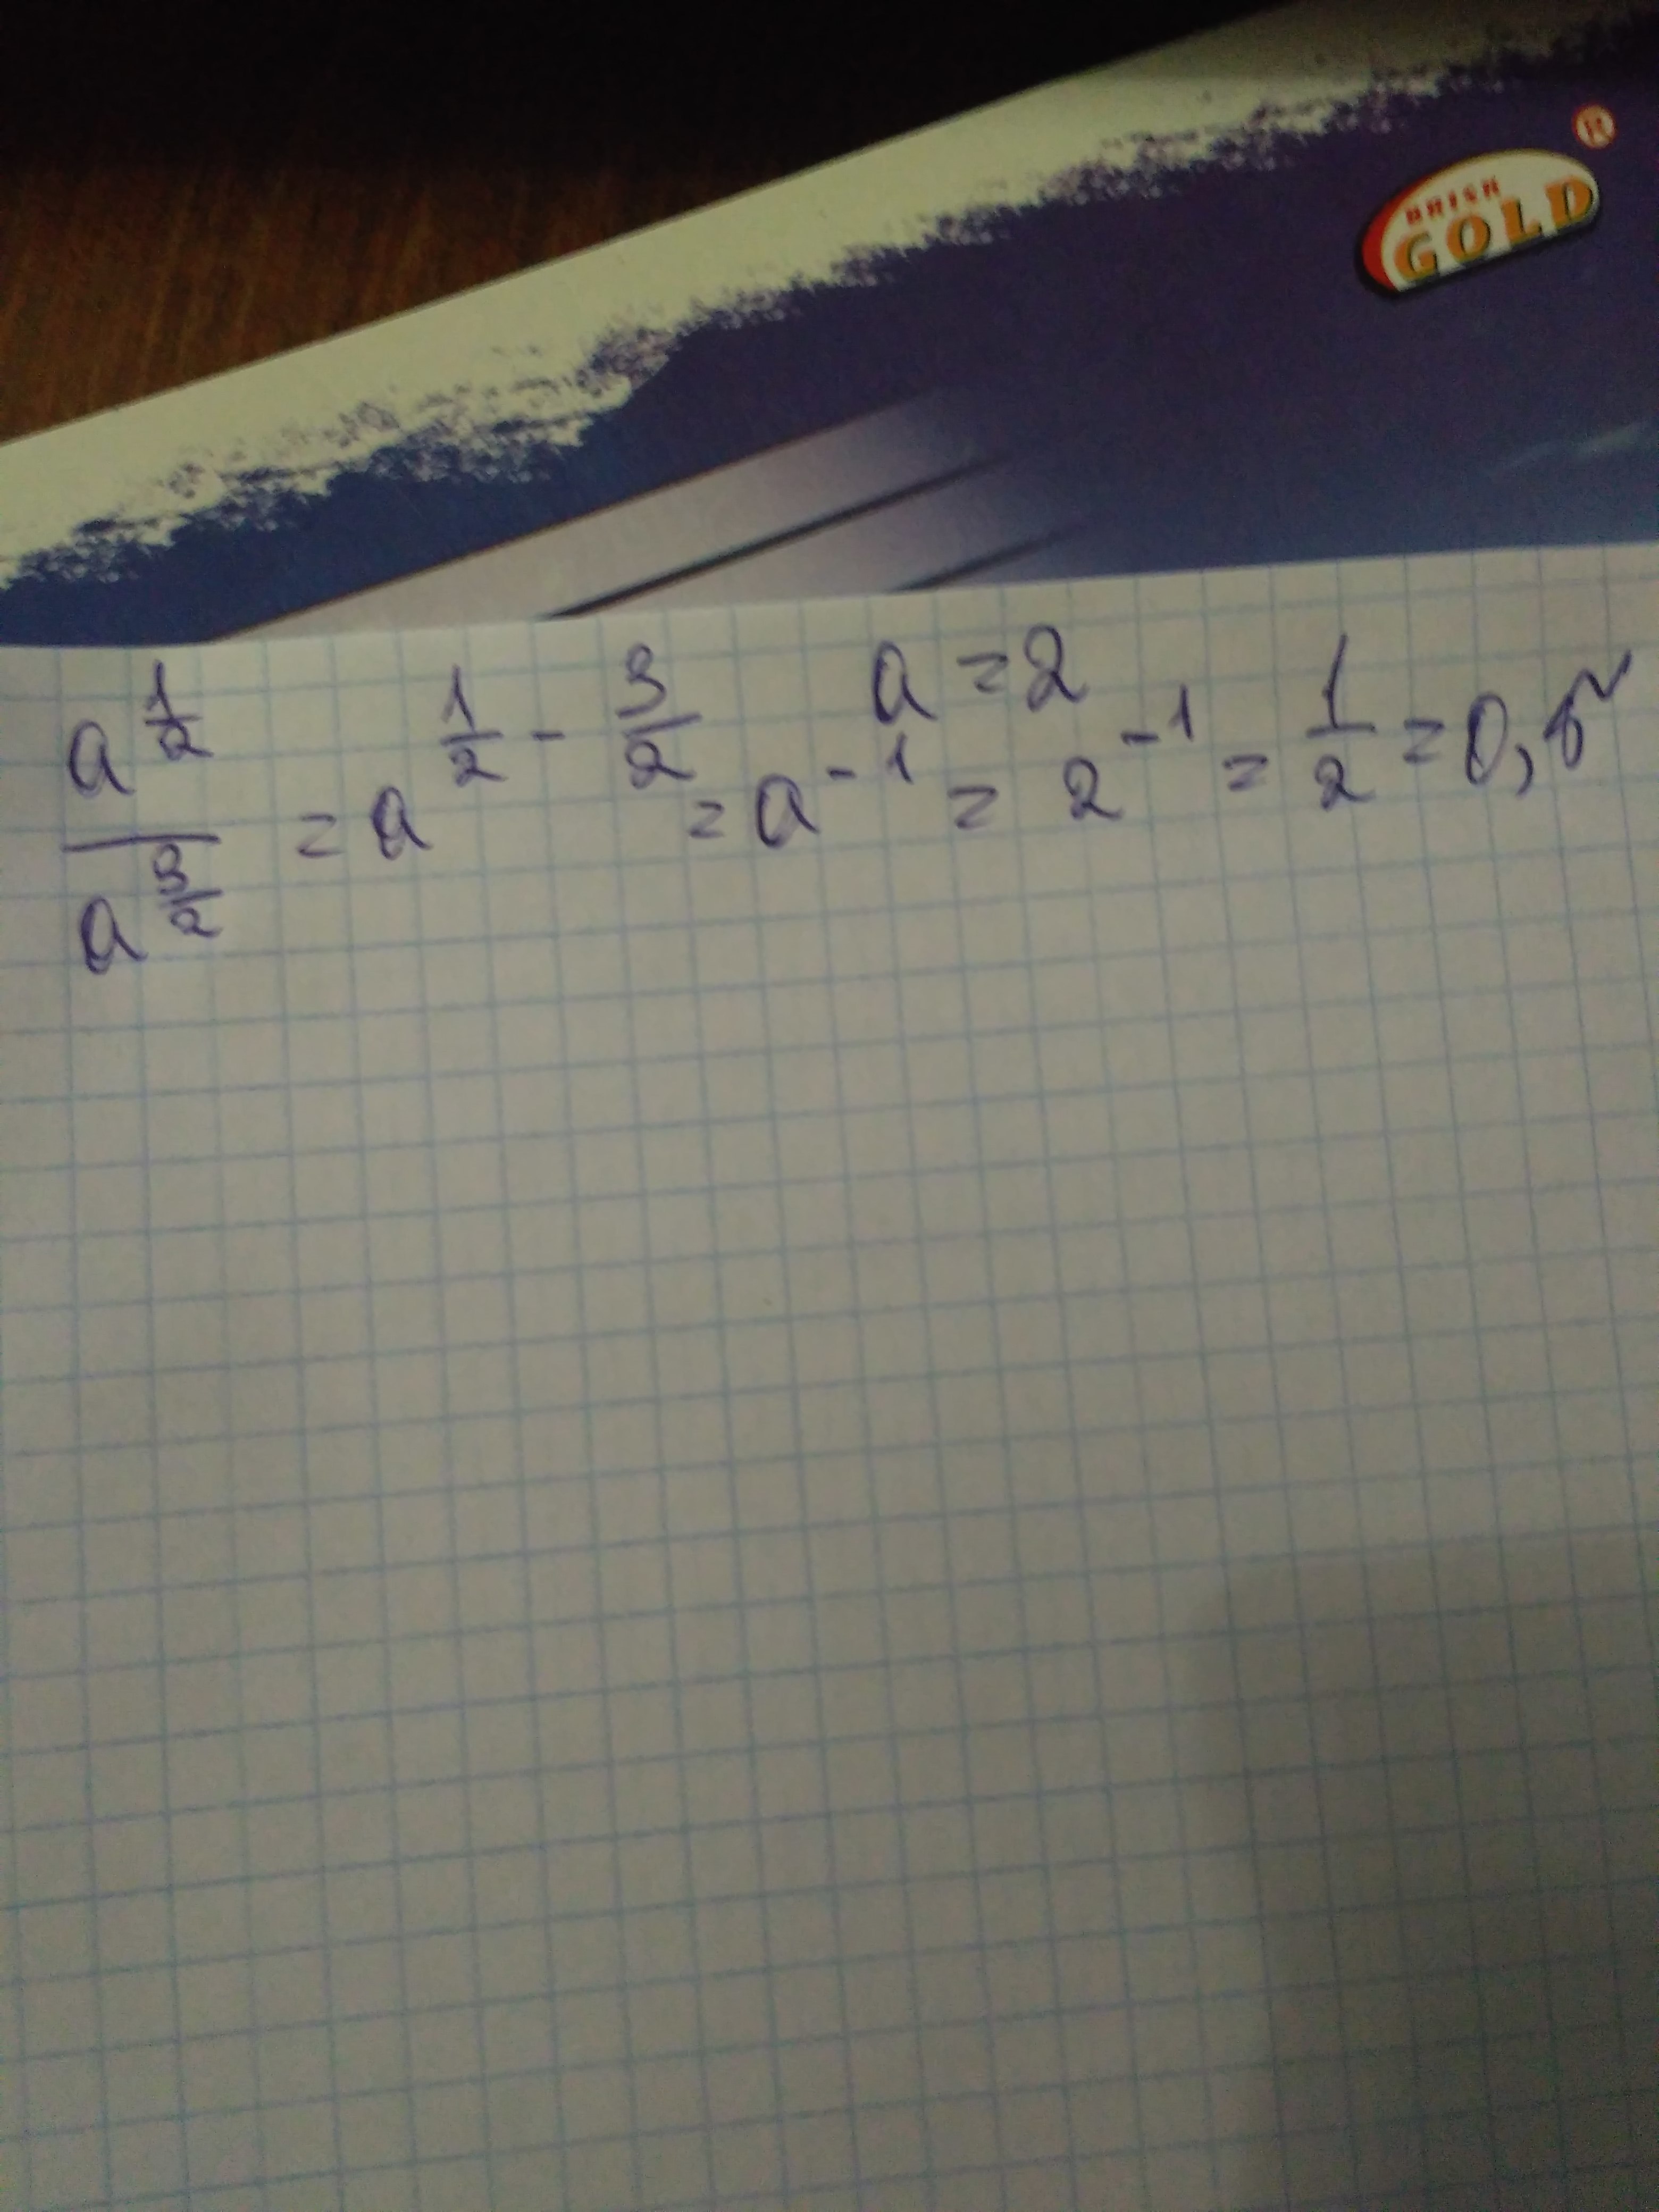 BRISK
GOLD®
a = 2
a^(1/2) / a^(3/2) = a^(1/2 - 3/2) = a^(-1) = 2^(-1) = 1/2 = 0,5